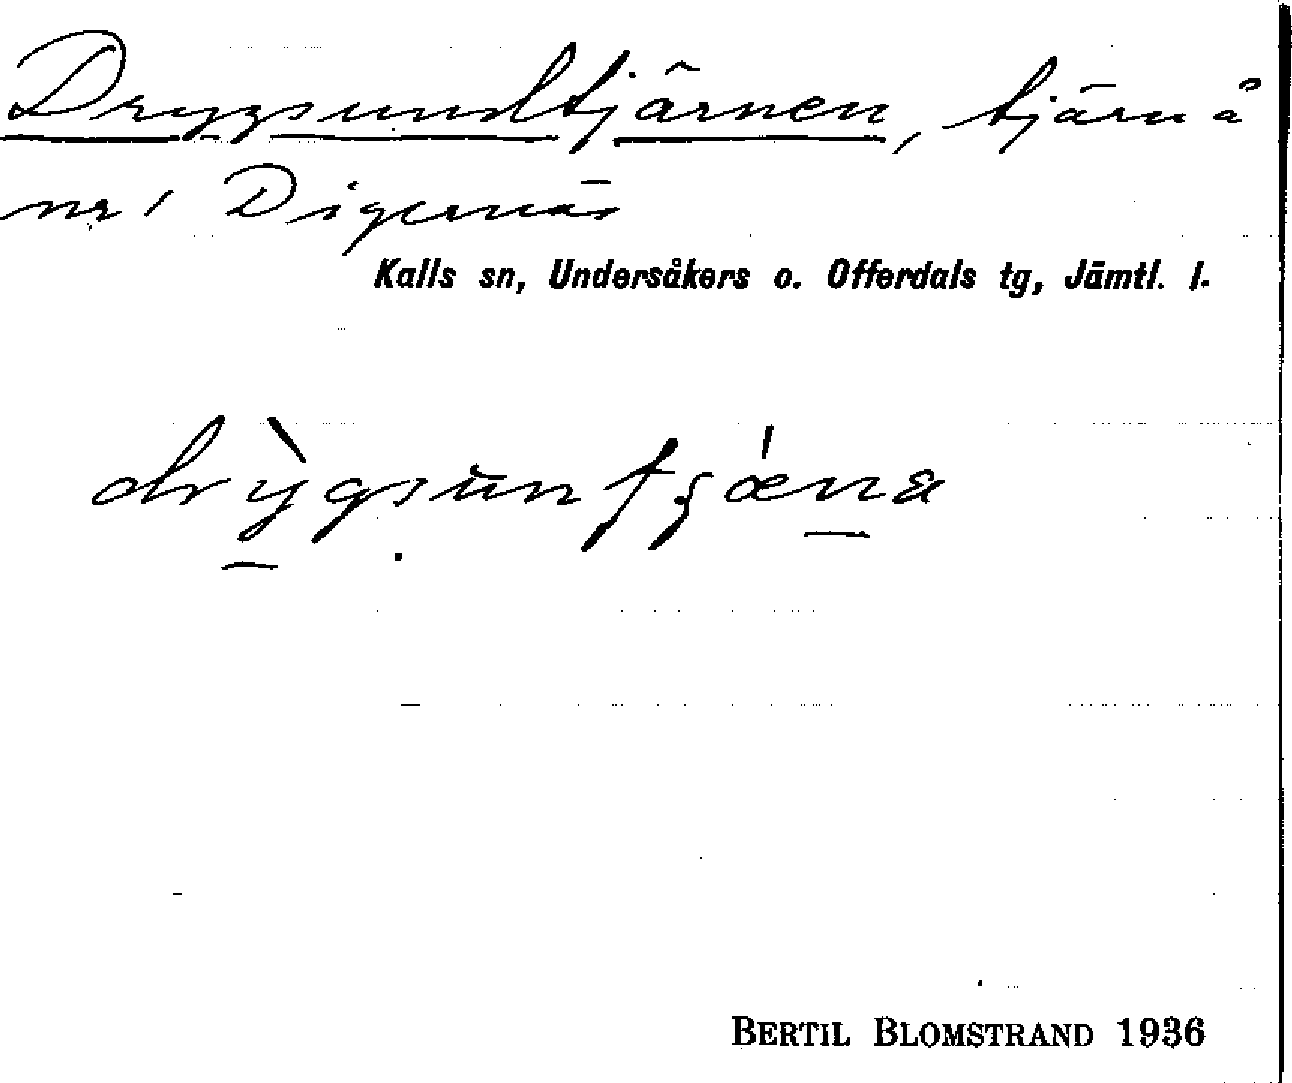 Drygsundtjärnen, tjärn å
nr 1 Digernäs
Kalls sn, Undersåkers o. Offerdals tg, Jämtl. l.
BERTIL BLOMSTRAND 1936